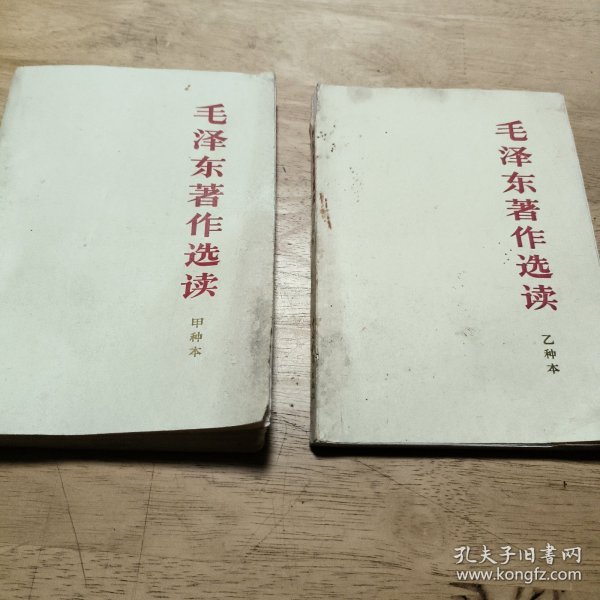 毛泽东著作选读
甲种本
毛泽东著作选读
乙种本
孔夫子旧书网
www.kongfz.com